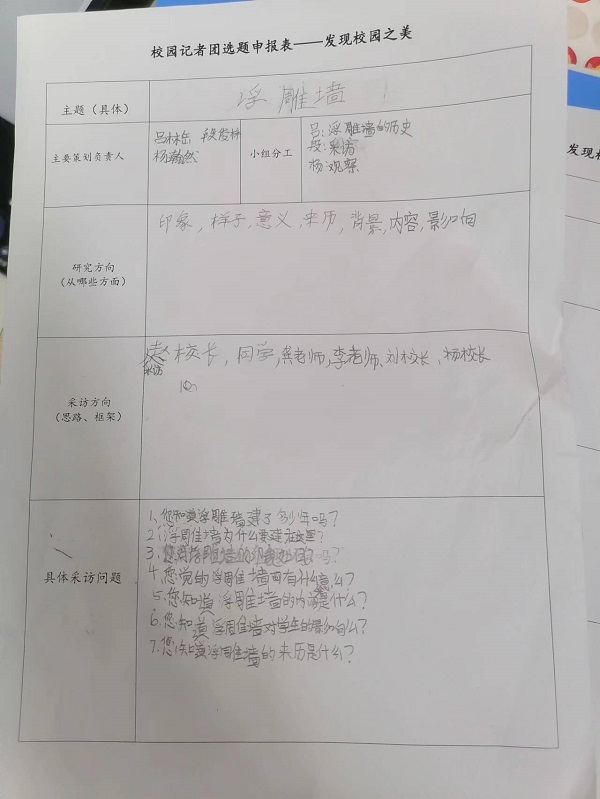 校园记者团选题申报表——发现校园之美
主题（具体）
浮雕墙！
主要策划负责人
吕林岳 段俊林
杨瀚然
小组分工
吕:浮雕墙的历史
段:采访
杨:观察
研究方向
（从哪些方面）
印象，样子，意义，来历，背景，内容，影响
采访方向
（思路、框架）
赵校长，同学，龚老师，李老师、刘校长、杨校长
采访
具体采访问题
1、您知道浮雕墙建了多少年吗？
2、浮周隹墙为什么要建在这里？
3、您对浮雕墙的印象
4、您觉的浮周隹墙画有什么意么？
5、您知道浮周隹墙的内容是什么？
6、您知道浮周隹墙对学生的影响么？
7、您知道浮周隹墙的来历是什么？
发现校